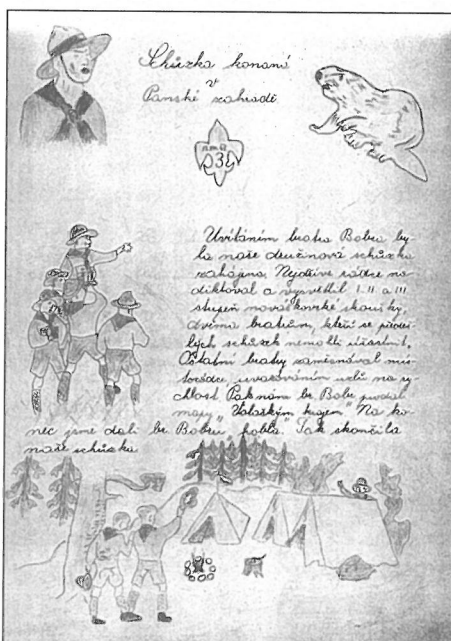 Schůzka konaná
v
Panské zahradě
Uvítáním bratra Bobra by-
la naše družinová schůzka
zahájena. Nejdříve rádce na-
diktoval a vysvětlil I. II. a III.
stupeň nováčkovské zkoušky,
dvěma bratrům, kteří se
schůzek nemohli účastnit.
Ostatní bratry zaměstnával
uvazováním uzlů na ry-
chlost. Pak nám br. Bobr
mapy „Valašským krajem“. Na ko-
nec jsme dali br. Bobru „pokla“. Tak skončila
naše schůzka